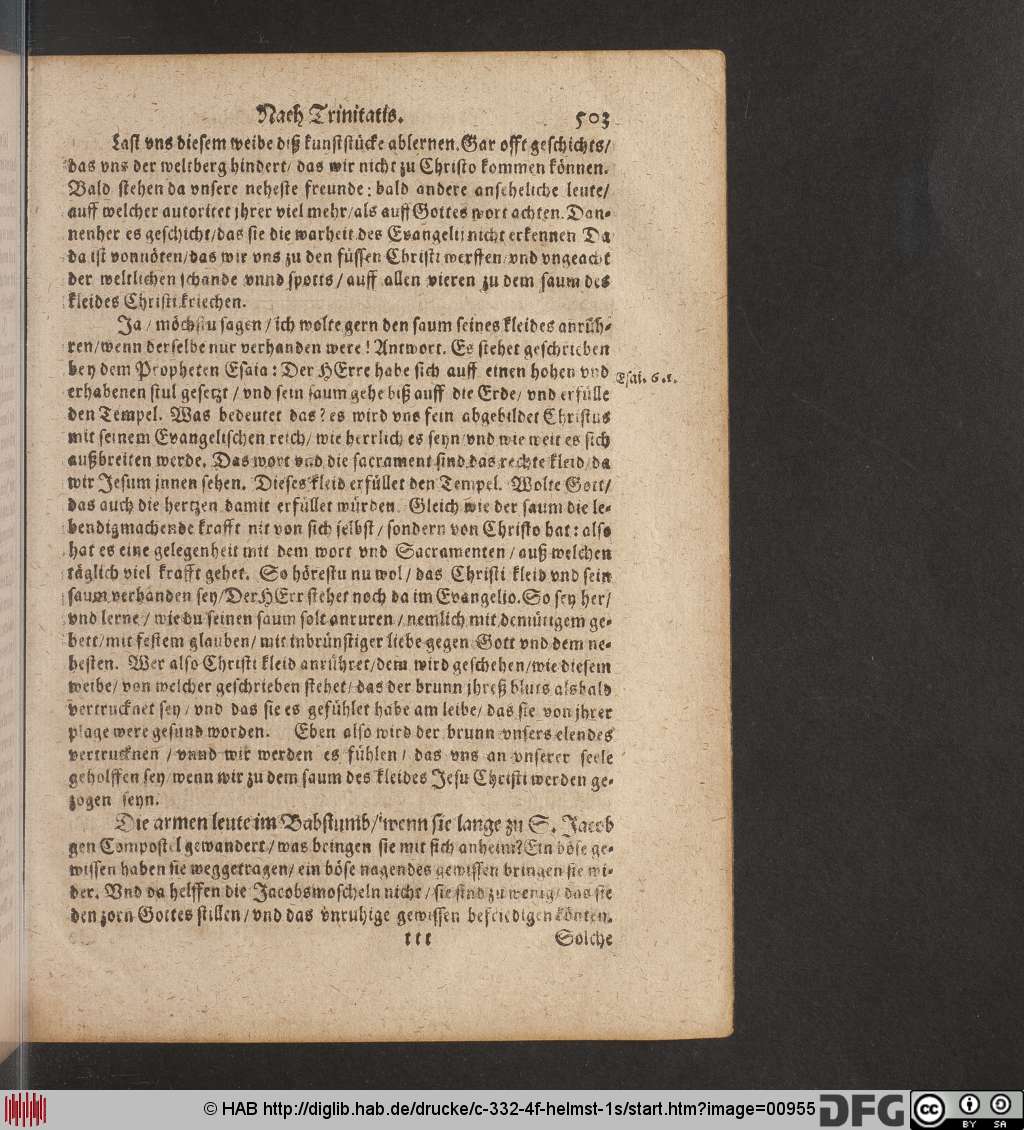 Nach Trinitatis. 503
Last vns diesem weibe diß kunststücke ablernen. Gar offt geschichts/
das vns der weltberg hindert/ das wir nicht zu Christo kommen können.
Bald stehen da vnsere neheste freunde: bald andere anseheliche leute/
auff welcher autoritet jhrer viel mehr/ als auff Gottes wort achten. Dan-
nenher es geschicht/ das sie die warheit des Evangelii nicht erkennen Da
da ist vonnöten/ das wir vns zu den füssen Christi werffen/ vnd vngeacht
der weltlichen schande vnnd spotts/ auff allen vieren zu dem saum des
kleides Christi kriechen.
Ja/ möchstu sagen/ ich wolte gern den saum seines kleides anrüh-
ren/ wenn derselbe nur verhanden were! Antwort. Es stehet geschrieben
bey dem Propheten Esaia: Der HErre habe sich auff einen hohen vnd
Esai. 6.1.
erhabenen stul gesetzt/ vnd sein saum gehe biß auff die Erde/ vnd erfülle
den Tempel. Was bedeutet das? es wird vns fein abgebildet Christus
mit seinem Evangelischen reich/ wie herrlich es seyn/ vnd wie weit es sich
außbreiten werde. Das wort vnd die sacrament sind das rechte kleid/ da
wir Jesum jnnen sehen. Dieses kleid erfüllet den Tempel. Wolte Gott/
das auch die hertzen damit erfüllet würden. Gleich wie der saum die le-
bendigmachende krafft nit von sich selbst/ sondern von Christo hat: also
hat es eine gelegenheit mit dem wort vnd Sacramenten/ auß welchen
täglich viel krafft gehet. So hörestu nu wol/ das Christi kleid vnd sein
saum verhanden sey/ Der HErr stehet noch da im Evangelio. So sey her/
vnd lerne/ wie du seinen saum solt anruren/ nemlich mit demütigem ge-
bett/ mit festem glauben/ mit inbrünstiger liebe gegen Gott vnd dem ne-
hesten. Wer also Christi kleid anrühret/ dem wird geschehen/ wie diesem
weibe/ von welcher geschrieben stehet/ das der brunn jhreß bluts alsbald
vertrucknet sey/ vnd das sie es gefühlet habe am leibe/ das sie von jhrer
plage were gesund worden. Eben also wird der brunn vnsers elendes
vertrucknen/ vnnd wir werden es fühlen/ das vns an vnserer seele
geholffen sey/ wenn wir zu dem saum des kleides Jesu Christi werden ge-
zogen seyn.
Die armen leute im Babstumb/ wenn sie lange zu S. Jacob
gen Compostel gewandert/ was bringen sie mit sich anheim? Ein böse ge-
wissen haben sie weggetragen/ ein böse nagendes gewissen bringen sie wi-
der. Vnd da helffen die Jacobsmoscheln nicht/ sie sind zu wenig/ das sie
den zorn Gottes stillen/ vnd das vnruhige gewissen befriedigen könten.
ttt Solche
© HAB http://diglib.hab.de/drucke/c-332-4f-helmst-1s/start.htm?image=00955
DFG
cc BY SA